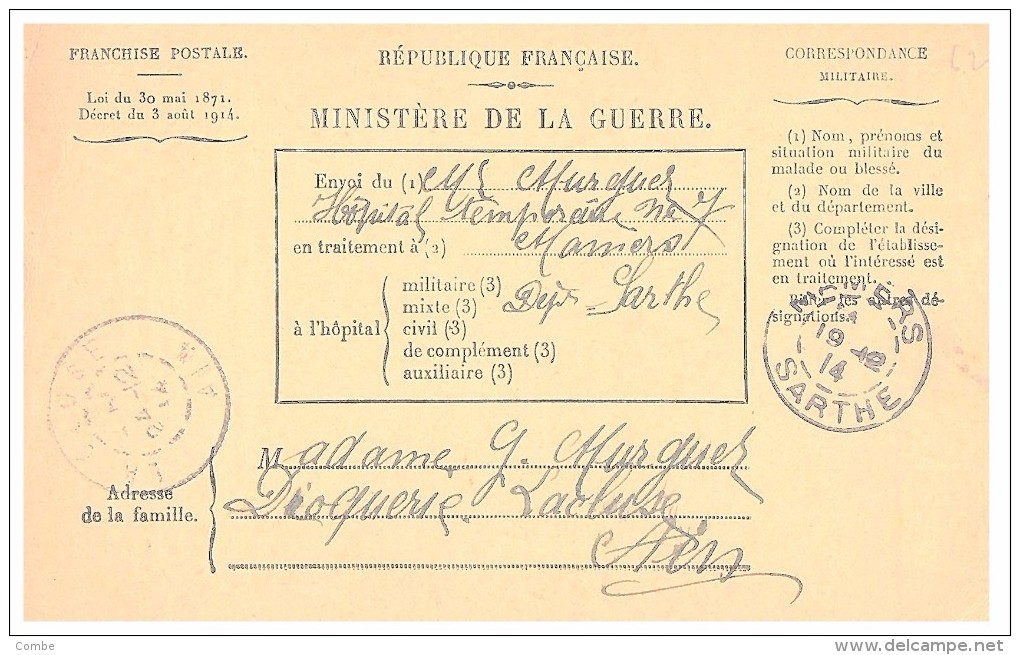 FRANCHISE POSTALE.
Loi du 30 mai 1871.
Décret du 3 août 1914.
RÉPUBLIQUE FRANÇAISE.
MINISTÈRE DE LA GUERRE.
CORRESPONDANCE
MILITAIRE.
62
(1) Nom, prénoms et
situation militaire du
malade ou blessé.
(2) Nom de la ville
et du département.
(3) Compléter la dési-
gnation de l'établisse-
ment où l'intéressé est
en traitement.
Biffer les autres dé-
signations.
Envoi du (1) Murguet
Hôpital temporaire No 7
en traitement à (2) Mamers
à l'hôpital
militaire (3) Sarthe
mixte (3)
civil (3)
de complément (3)
auxiliaire (3)
MAMERS
19 12
14
SARTHE
LA CLUSE
AIN
Adresse
de la famille.
Madame G. Murguet
Droguerie Lacluse
Ain
Combe
delcampe.net